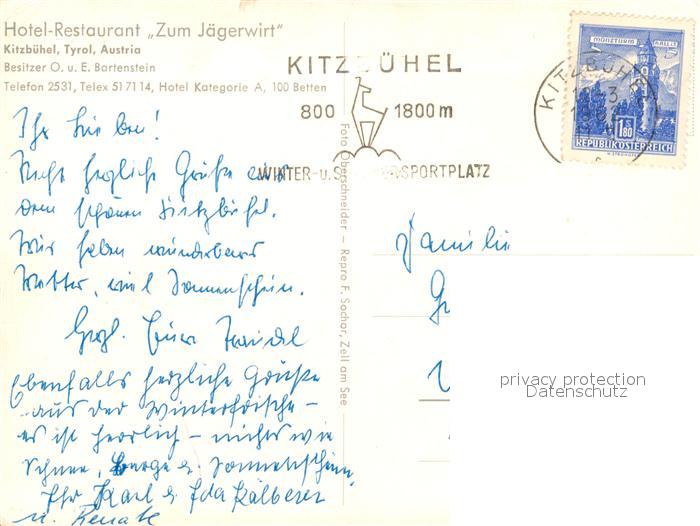 Hotel-Restaurant „Zum Jägerwirt“
Kitzbühel, Tyrol, Austria
Besitzer O. u. E. Bartenstein
Telefon 2531, Telex 517114, Hotel Kategorie A, 100 Betten
KITZBÜHEL
800 1800m
WINTER-u.S ERSPORTPLATZ
KITZBÜHEL
MÜNZTURM HALL i.T.
1.80
REPUBLIK ÖSTERREICH
Foto Oberschneider — Repro F. Sochor, Zell am See
Ihr Lieben!
Recht herzliche Grüße aus
dem schönen Kitzbühel.
Wir haben wunderbares
Wetter, viel Sonnenschein.
Herzl. Eure Traudl
Ebenfalls herzliche Grüße
aus der Winterfrische –
es ist herrlich – nichts wie
Schnee, Berge u. Sonnenschein.
Ihr Karl u. Ida Kälberer
u. Renate
Familie
privacy protection
Datenschutz